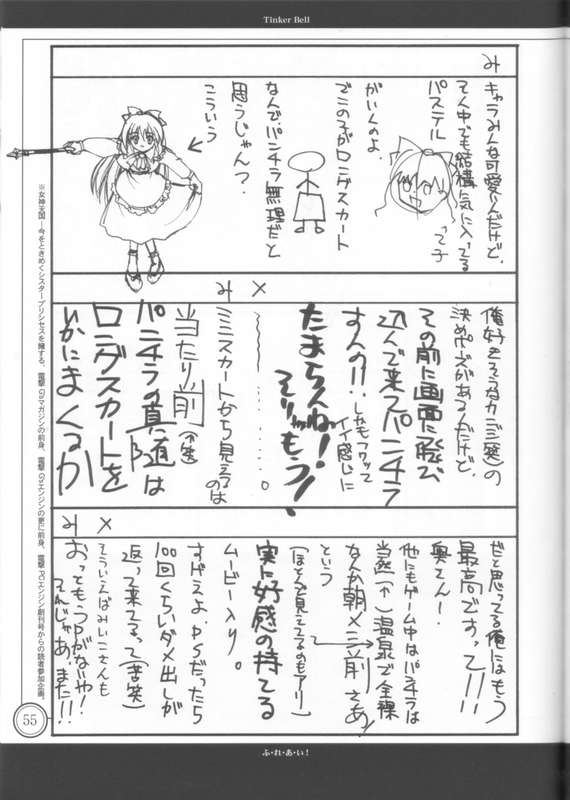 Tinker Bell
み
キャラみんな可愛いんだけど、
そん中でも結構気に入ってる
パステル
って子
がいんのよ。
でこの子がロングスカート
なんで、パンチラ無理だと
思うじゃんっ？
こういう
メ
み
俺好きそうなカンジ(笑)の
決めポーズがあるんだけど、
その前に画面に飛び
込んで来てパンチラ
すんの!!
しかもフワッて
イイ感じに
たまらんね!
そりゃもう!
ミニスカートから見えるのは
当たり前(苦笑)
パンチラの真随は
ロングスカートを
いかにまくるか
メ
み
だと思ってる俺にはもう
最高ですって!!!
奥さんー!
他にもゲーム中はパンチラは
当然(↑)温泉で全裸
なんか朝メシ前さあ
という
(ほとんど見えてるのもアリ)
実に好感の持てる
ムービー入り。
すげえよ、PSだったら
100回くらいダメ出しが
返って来てるって(苦笑)
そういえばみいこさんも
おっともうPがないや!
そんじゃあ、また!!
※女神天国――今をときめくシスタープリンセスを擁する、電撃G'sマガジンの前身、電撃G'sエンジンの更に前身、電撃PCエンジン創刊号からの読者参加企画。
55
ふ・れ・あ・い！